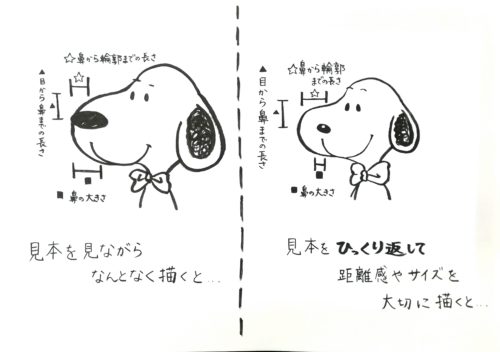 ☆鼻から輪郭までの長さ
☆
▲目から鼻までの長さ
▲
■
■鼻の大きさ
見本を見ながら
なんとなく描くと…
☆鼻から輪郭
までの長さ
☆
▲目から鼻までの長さ
▲
■
■鼻の大きさ
見本をひっくり返して
距離感やサイズを
大切に描くと…